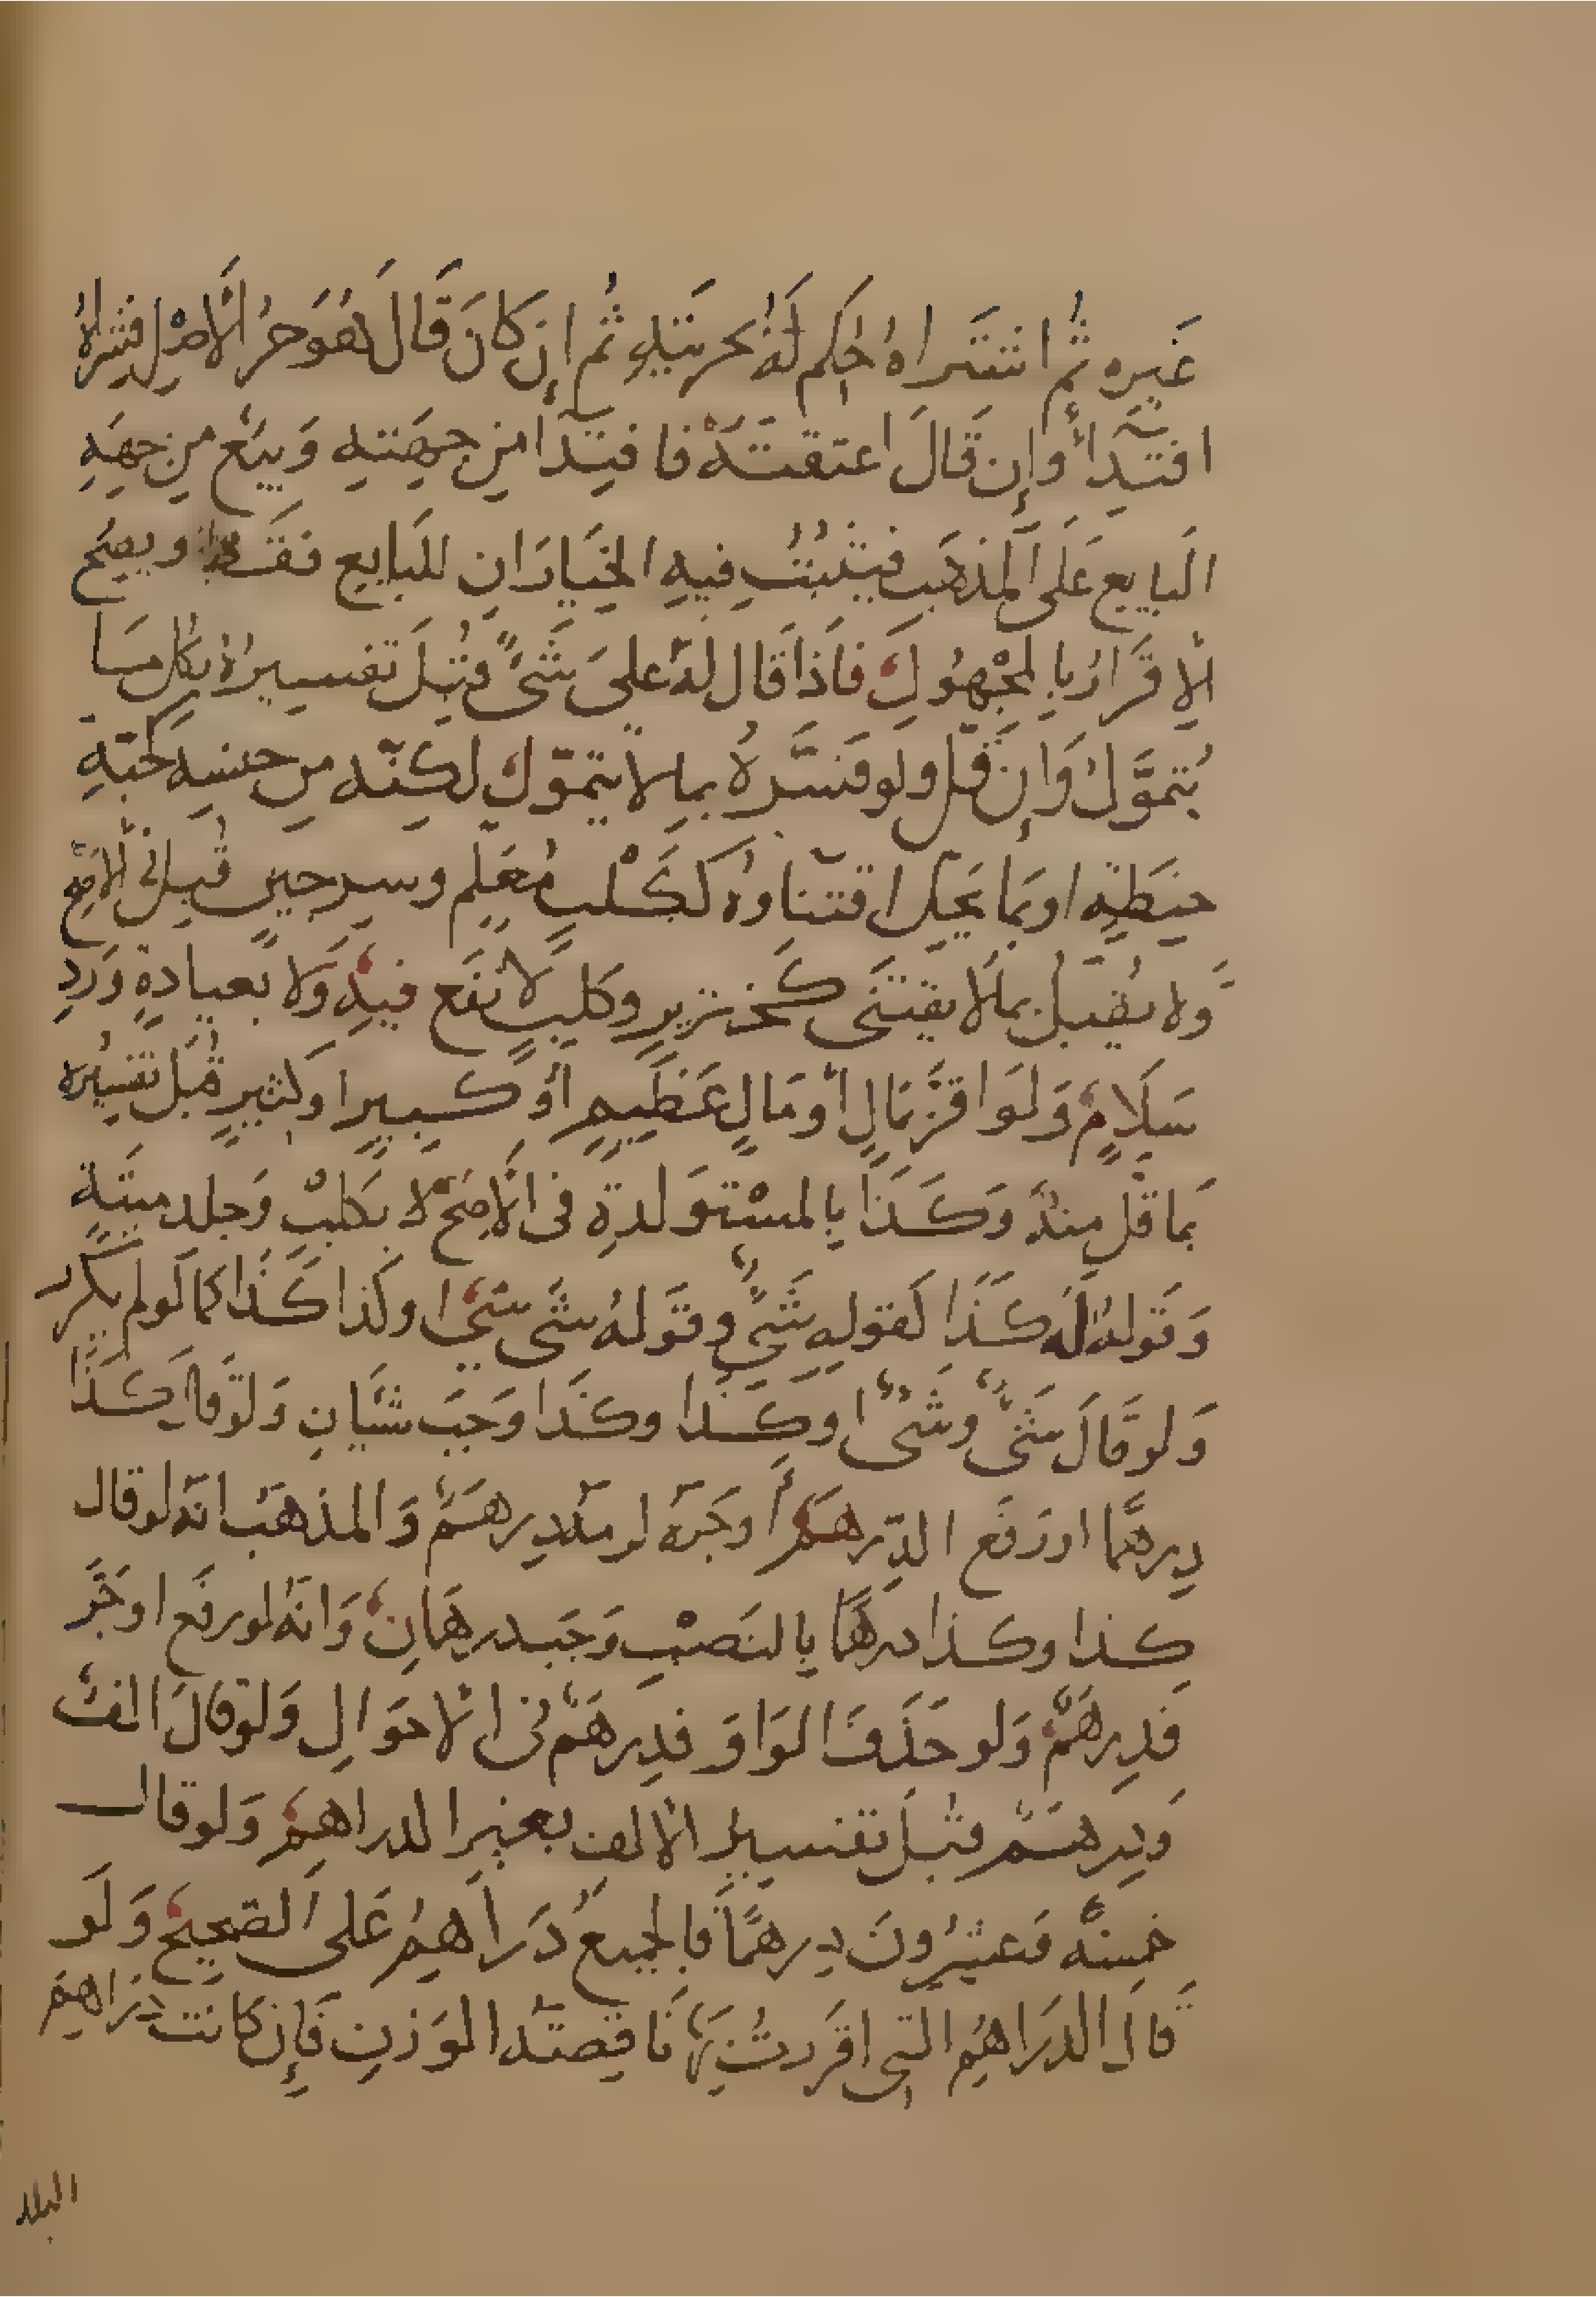 غَيره ثُم اشتَراهُ حُكم لَهُ بحريَتِهِ ثُم إن كانَ قَالَ هُوَ حرُ الأصْلِ فشراهُ
افتدأ وإن قَالَ اعتقتَهُ فافتِدَا مِن جِهَتهِ وَبيَع مِن جهَةِ
البايع عَلَى المذهَب فيثبُتُ فيهِ الخيَارَانِ للبَايع فقَط ويصِحُ
الإقرَارُ بالمجْهُولِ فاذَا قَال لهُ علىَ شَىٌ قُبِلَ تفسيرُهُ بكُل مَا
يُتموَّلُ وَإن قَل ولو فَسَّرهُ بما لا يتموّل لكنّه من جنسِه كَحَبّةِ
حِنطَةٍ او بمَا يَحِل اقتنَاوهُ كَكَلْبٍ مُعَلَمٍ وسِرجينٍ قُبِل في الاصَحِ
وَلا يُقبَل بمالا يقتنَى كَخنزيرٍ وكَلبٍ لا نَفَع فيهِ وَلا بعيادةٍ وَرَدِ
سَلَامٍ وَلوَ اقرَّ بمَالٍ أو مَالٍ عَظِيمٍ أو كبيرٍ او كثيرٍ قُبلَ تفسِيُره
بَما قَل مِنهُ وَكَذَا بالمسْتوَلدةِ فى الأصَحِ لا بكَلبٍ وَجلد ميتَةٍ
وَقَولهُ لَه كَذَا كَقولهِ شَىٌ وقَولهُ شَى شَىٌ او كَذا كَذَا كما لَو لم يكرر
وَلوقَالَ شَىٌ وشَىٌ او كَذا وكَذَا وَجبَ شيَانِ وَلوَقالَ كَذَا
دِرهمًا او رَفَع الدِرهَم أو جَرهُ لزمَهُ دِرهَمٌ وَالمذهَب انهُ لوقال
كذا وكذا درهمًا بالنَصْبِ وَجَب درهمَانِ وَانهُ لورفَع اوجَر
فَدِرهَمٌ وَلو حَذَفَ الوَاوَ فدِرهَم فى الاحوَالِ وَلوقالَ الفٌ
وَدِرهَمٌ قبُلَ تفسيرُ الالفِ بغيرِ الدراهِمِ وَلوقال
خمسةٌ وَعشرُونَ دِرهمًا فَالجميعُ دَراهِمُ عَلى الصَحيحِ وَلَو
قَالَ الدَراهِمُ التى اقرَرتُ بهَا نَاقِصَةُ الوَزنِ فإن كَانَت دَرَاهِم
البلد